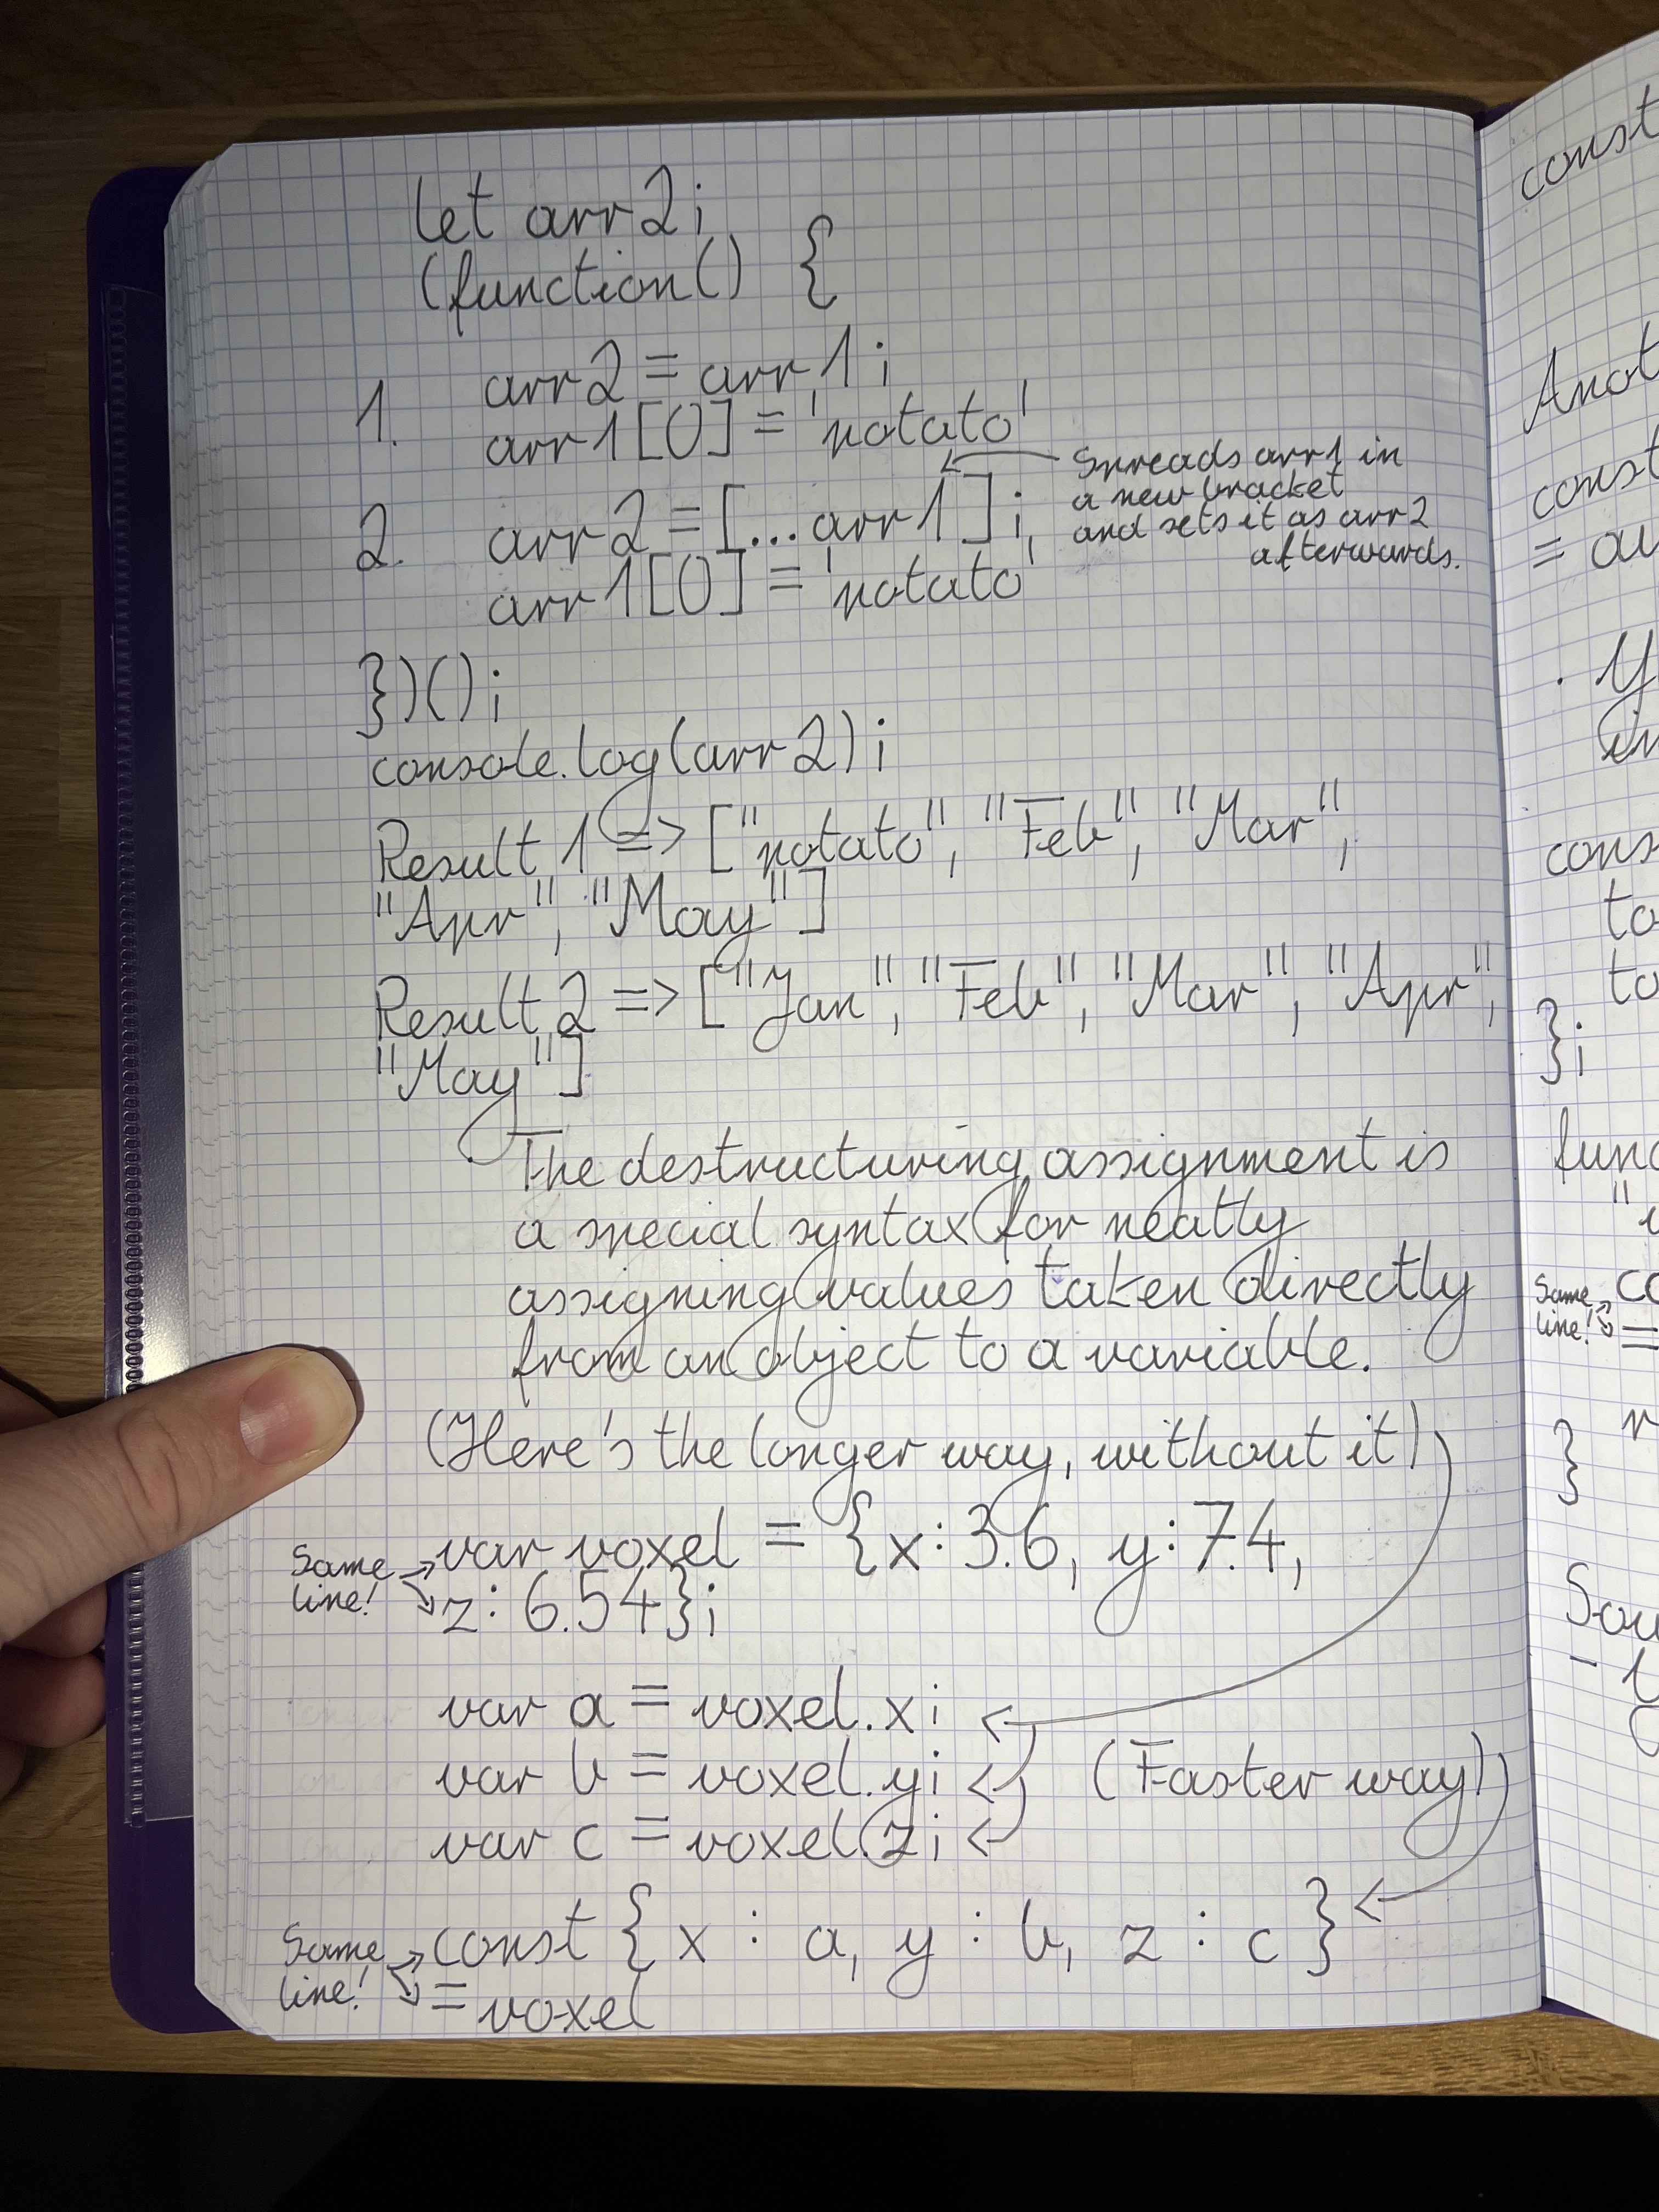 let arr2;
(function() {
1. arr2 = arr1;
arr1[0] = 'potato'
2. arr2 = [...arr1];
arr1[0] = 'potato'
Spreads arr1 in
a new bracket
and sets it as arr2
afterwards.
})();
console.log(arr2);
Result 1 => ["potato", "Feb", "Mar",
"Apr", "May"]
Result 2 => ["Jan", "Feb", "Mar", "Apr",
"May"]
. The destructuring assignment is
a special syntax for neatly
assigning values taken directly
from an object to a variable.
(Here's the longer way, without it)
Same line! var voxel = {x: 3.6, y: 7.4,
z: 6.54};
var a = voxel.x;
var b = voxel.y;
var c = voxel.z;
(Faster way)
Same line! const { x : a, y : b, z : c }
= voxel
const
const
=
};
Same
line!
=
}